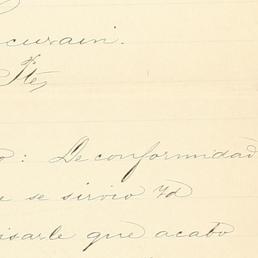 curain.
Pte,
o: De conformidad
e se sirvio Vd
isarle que acabo